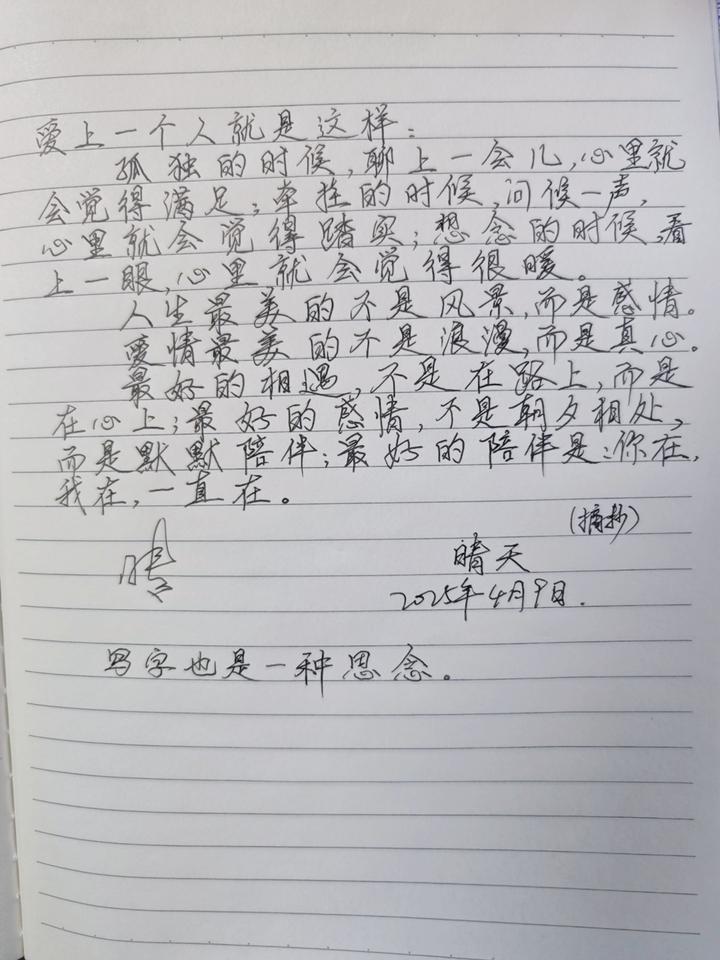 爱上一个人就是这样：
孤独的时候，聊上一会儿，心里就
会觉得满足；牵挂的时候，问候一声，
心里就会觉得踏实；想念的时候，看
上一眼，心里就会觉得很暖。
人生最美的不是风景，而是感情。
爱情最美的不是浪漫，而是真心。
最好的相遇，不是在路上，而是
在心上；最好的感情，不是朝夕相处，
而是默默陪伴；最好的陪伴是：你在，
我在，一直在。
（摘抄）
晴天
2025年4月9日.
写字也是一种思念。